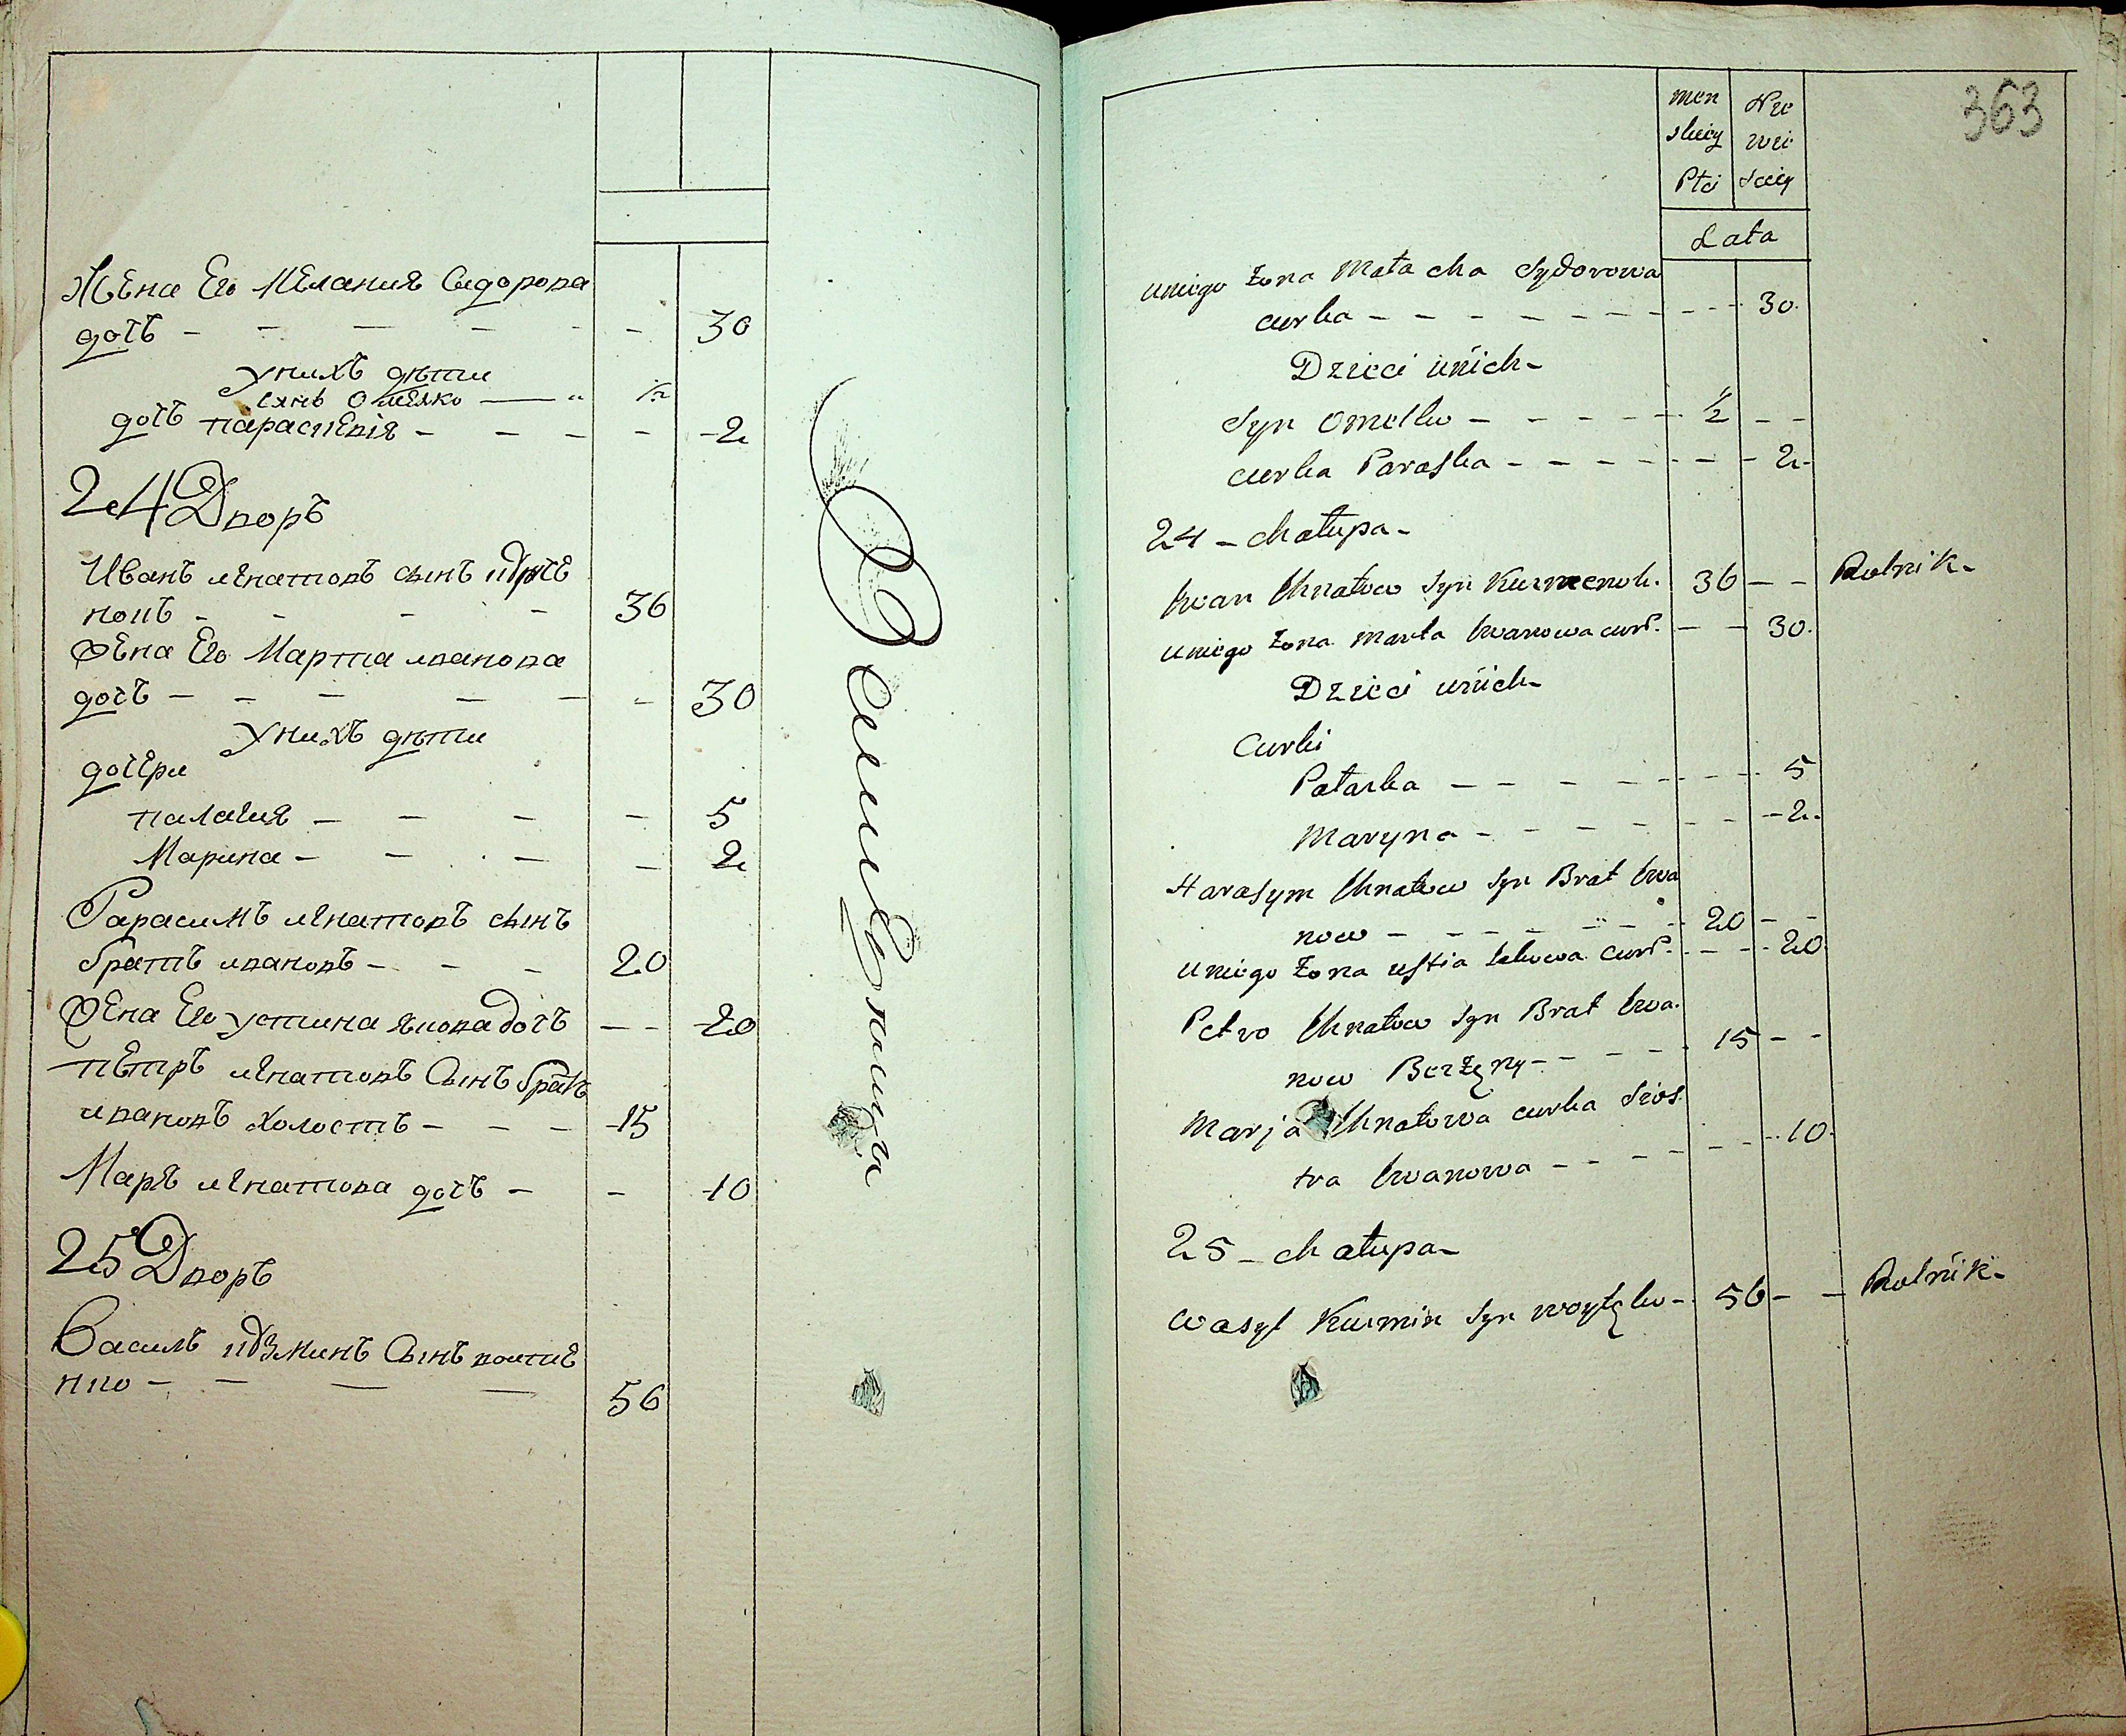 Жена Его Мелания Сидорова
дочь - - - - - 30
Унихъ дѣти
сынъ Омелко — " 1/2
дочь параскевiя - - - - 2
24 Дворъ
Иванъ игнатовъ сынъ
36
Жена Его Марта иванова
дочь - - - - - 30
Унихъ дѣти
дочери
палагия - - - - 5
Марина - - - - 2
Гарасимъ игнатовъ сынъ
братъ ивановъ - - - 20
Жена Его устина якова дочь - - 20
петръ игнатовъ Сынъ братъ
ивановъ холостъ - - - 15
Маря игнатова дочь - - 10
25 Дворъ
Василь Сынъ
56
363
men Nie
skiey wie
Płci sciey
Lata
uniego żona Małacha Sydorowa
curka - - - - - - - - - 30.
Dzieci unich -
Syn Omelko - - - - - ½ - -
curka Paraska - - - - - - - 2 -
24 - chałupa -
Iwan Ihnatow Syn 36 - - Rolnik -
uniego żona Marta Iwanowa curk. - - 30.
Dzieci unich -
Curki
Połaska - - - - - - - 5
Maryna - - - - - - - 2.
Harasym Ihnatow Syn Brat Iwa
now - - - - - - - 20 - -
uniego żona ustia curk. - - - 20
Petro Ihnatow Syn Brat Iwa.
now Berzęny - - - - - 15 - -
Marja Ihnatowa curka Sios
tra Iwanowa - - - - - - - 10.
25 - chałupa -
Wasyl Kuzmin Syn - 56 - - Rolnik -